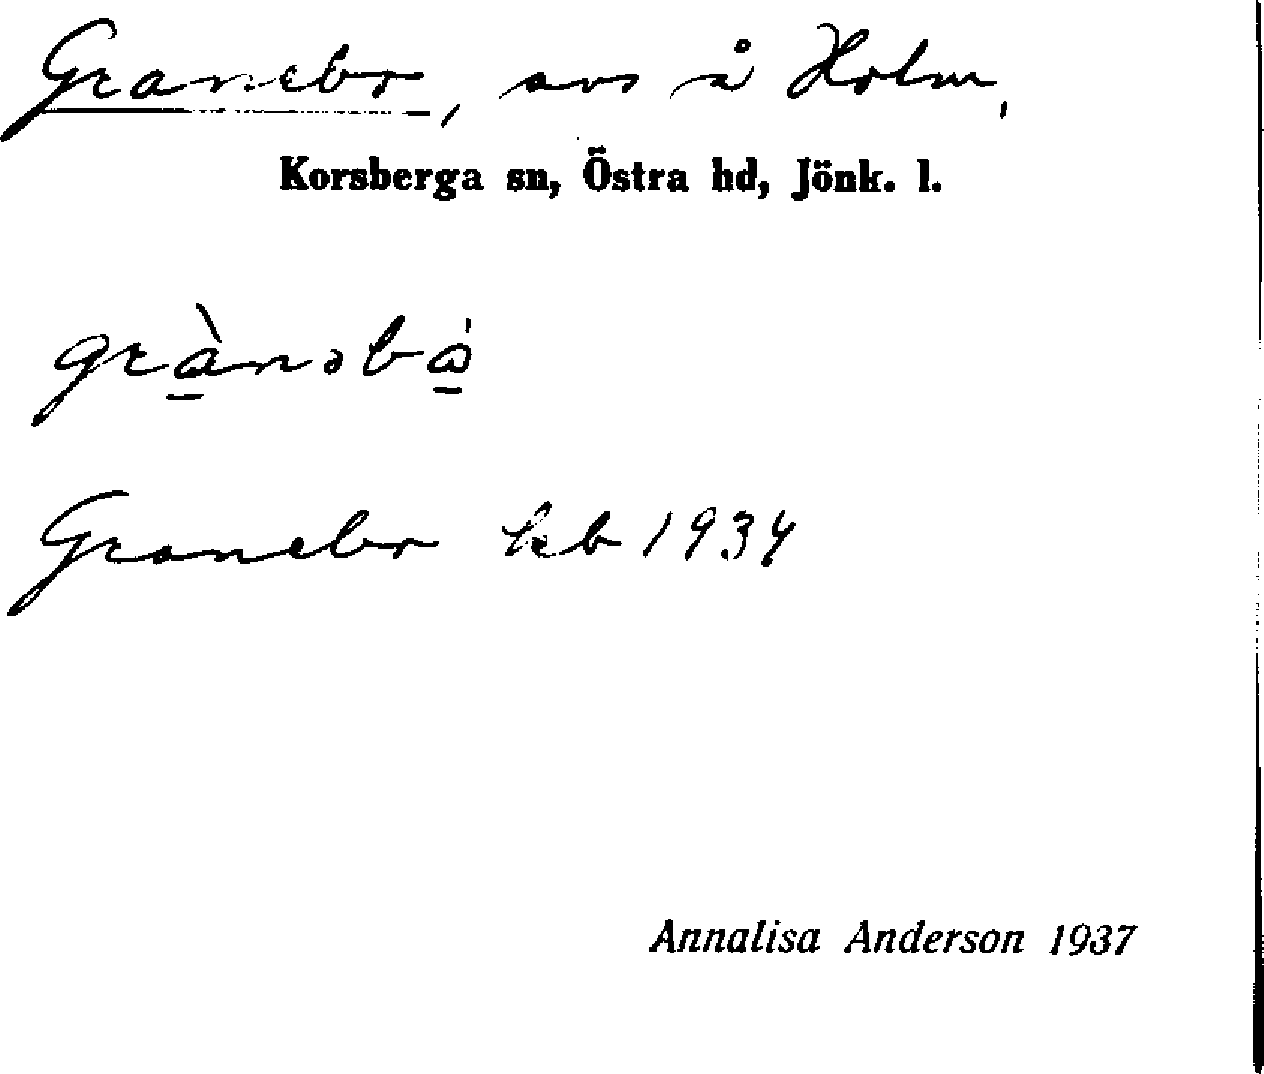 Granebo, avs å Holm,
Korsberga sn, Östra hd, Jönk. l.
grànəbó
Granebo kb 1934
Annalisa Anderson 1937